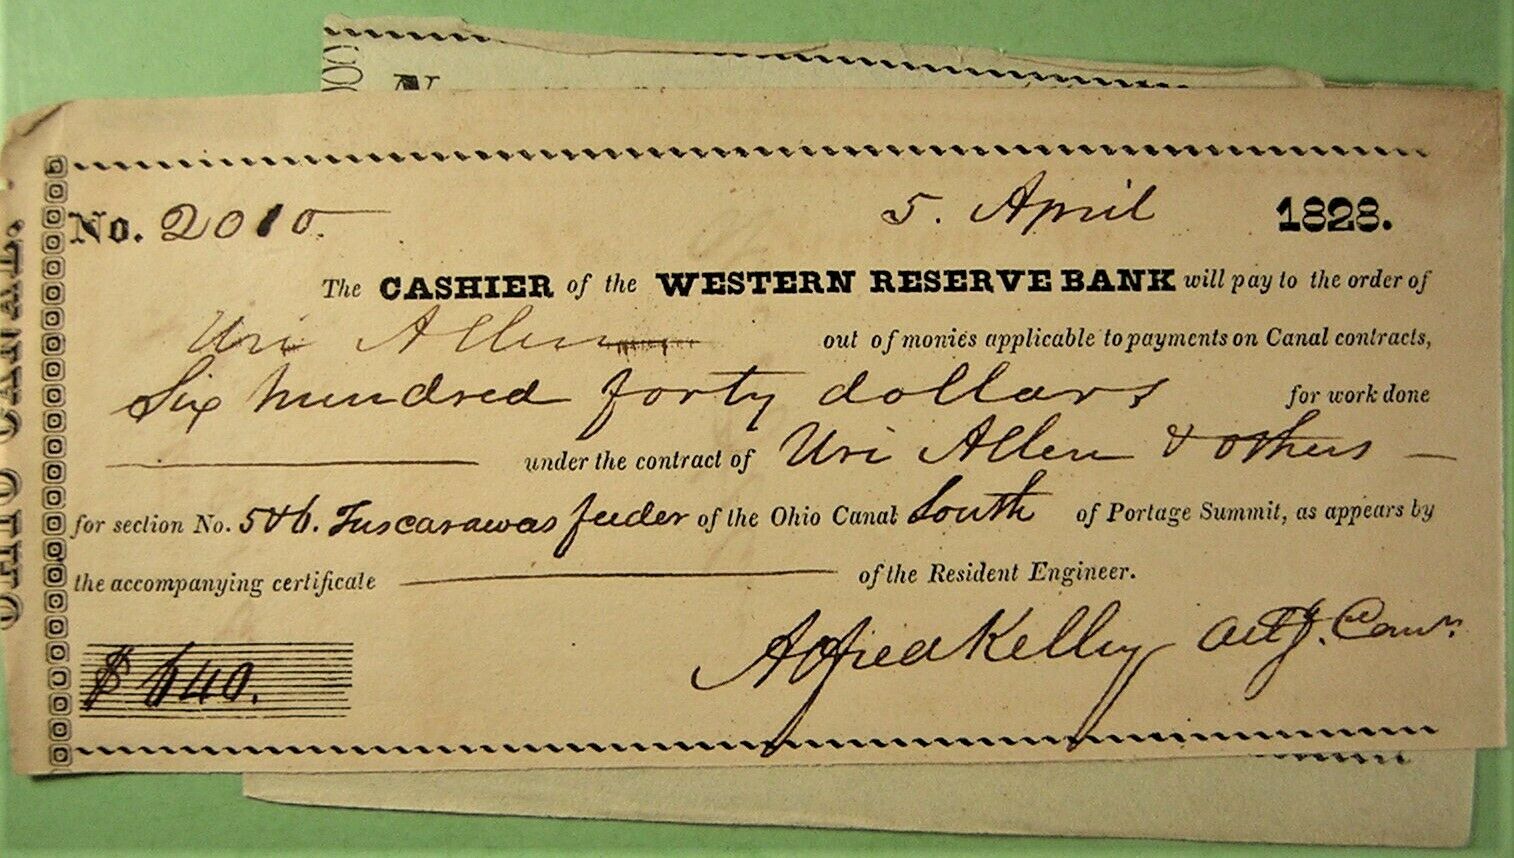 No. 2010.
5. April 1828.
The CASHIER of the WESTERN RESERVE BANK will pay to the order of
Uri Allen out of monies applicable to payments on Canal contracts,
Six hundred forty dollars for work done
under the contract of Uri Allen & others
for section No. 5 & 6. Tuscarawas feeder of the Ohio Canal South of Portage Summit, as appears by
the accompanying certificate of the Resident Engineer.
$ 640.
Alfred Kelley Act.g. Com.r
OHIO CANAL